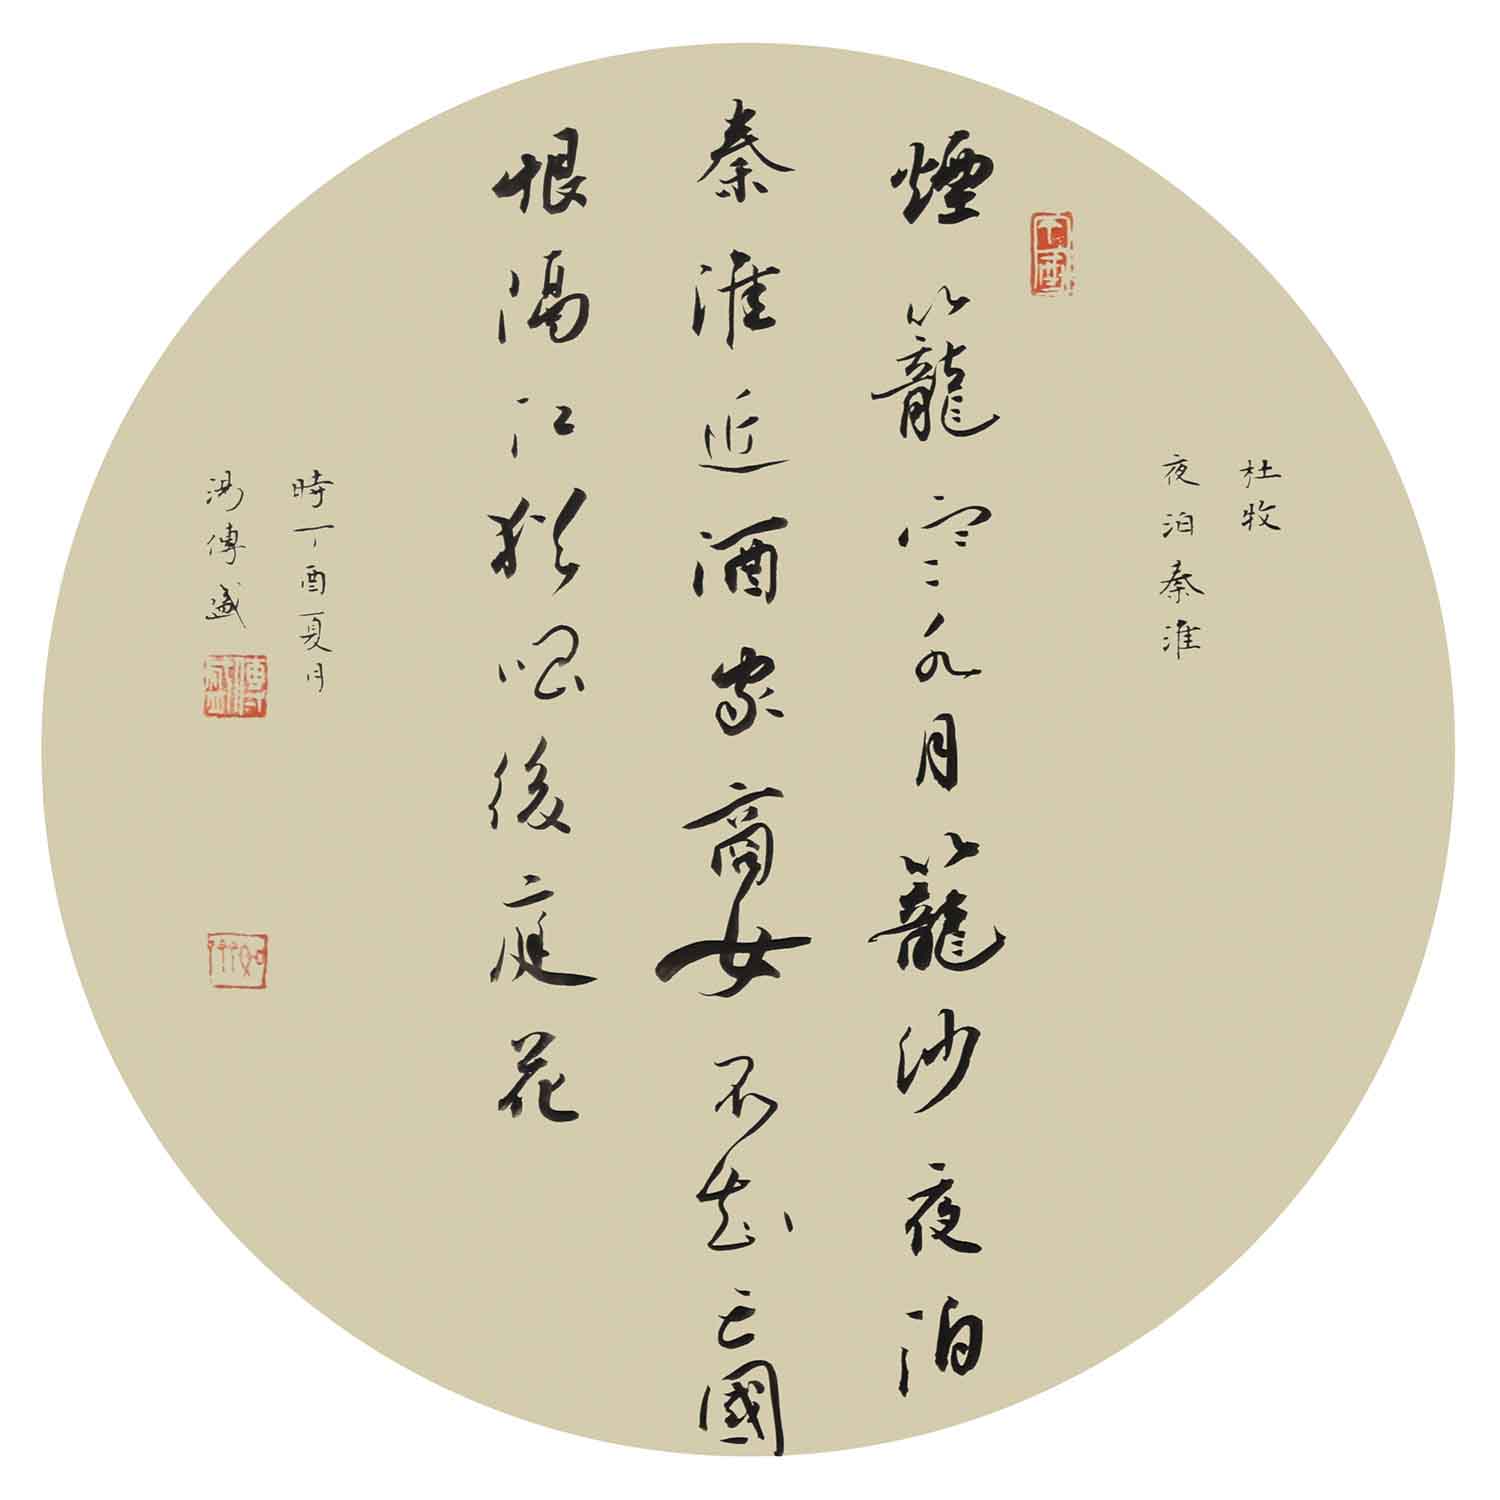 杜牧
夜泊秦淮
煙籠寒水月籠沙夜泊
秦淮近酒家商女不知亡國
恨隔江猶唱後庭花
時丁酉夏月
湯傳盛
傳盛